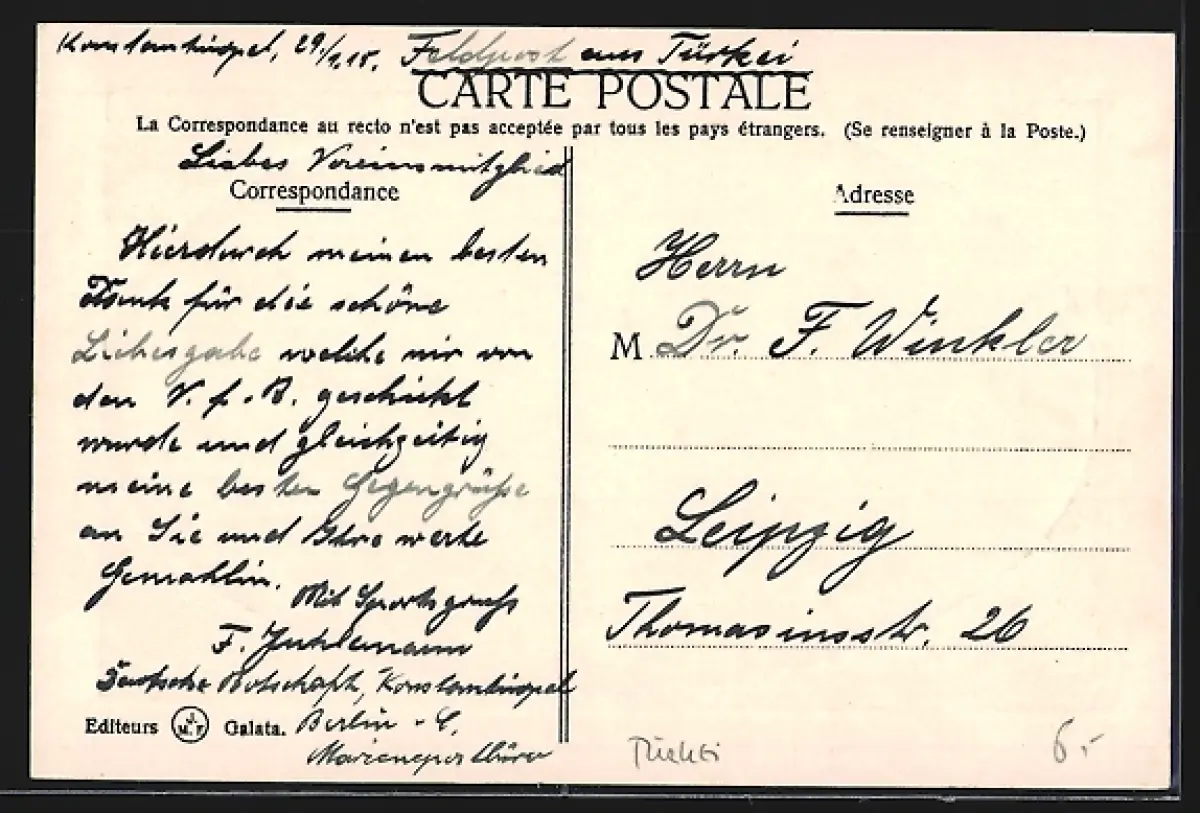 Konstantinopel, 29./1.15. Feldpost aus Türkei
CARTE POSTALE
La Correspondance au recto n'est pas acceptée par tous les pays étrangers. (Se renseigner à la Poste.)
Liebes Vereinsmitglied
Correspondance
Hierdurch meinen besten
Dank für die schöne
Liebesgabe welche mir von
den V. f. B. geschickt
wurde und gleichzeitig
meine besten Gegengrüße
an Sie und Ihre werte
Gemahlin.
Mit Sportsgruß
F.
Deutsche Botschaft, Konstantinopel
Berlin - C.
Marinepostbüro
Editeurs J. M. F. Galata.
Adresse
Herrn
M Dr. F. Winkler
Leipzig
Thomasiusstr. 26
Türkei
6.-